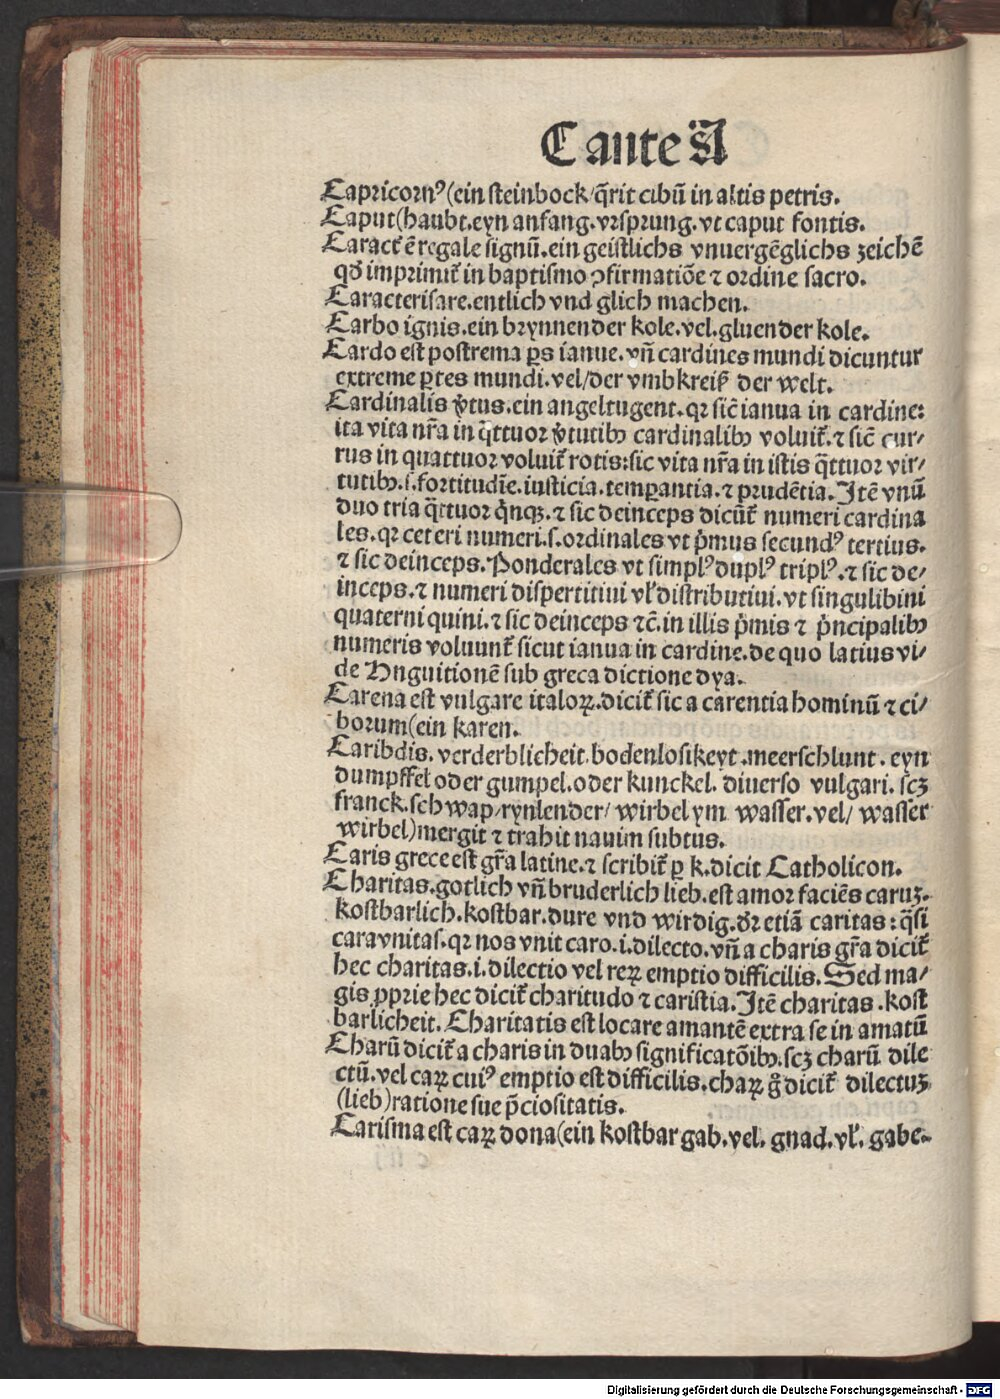 C ante A
Capricornꝰ(ein steinbock/q̄rit cibū in altis petris.
Caput(haubt.eyn anfang.vrsprung.vt caput fontis.
Caract̄ ē regale signū.ein geistlichs vnuergēglichs zeichē
qd̄ imprimit̄ in baptismo ꝯfirmatiōe ⁊ ordine sacro.
Caracterisare.entlich vnd glich machen.
Carbo ignis.ein brynnender kole.vel.gluender kole.
Cardo est postrema ꝑs ianue.vn̄ cardines mundi dicuntur
extreme ꝑtes mundi.vel/der vmbkreiß der welt.
Cardinalis v̓tus.ein angeltugent.qꝛ sic̄ ianua in cardine:
ita vita nr̄a in q̄ttuor v̓tutibꝫ cardinalibꝫ voluit̄.⁊ sic̄ cur/
rus in quattuor voluit̄ rotis:sic vita nr̄a in istis q̄ttuor vir/
tutibꝫ.s.fortitudīe.iusticia.temꝑantia.⁊ prudētia.Itē vnū
duo tria q̄ttuor q̇nqꝫ.⁊ sic deinceps dicūt̄ numeri cardina
les.qꝛ ceteri numeri.s.ordinales vt p̓mus secundꝰ tertius.
⁊ sic deinceps.Ponderales vt simplꝰ duplꝰ triplꝰ.⁊ sic de/
inceps.⁊ numeri dispertitiui vl̓ distributiui.vt singulibini
quaterni quini.⁊ sic deinceps ⁊c̄.in illis p̓mis ⁊ p̓ncipalibꝫ
numeris voluunt̄ sicut ianua in cardine.de quo latius vi/
de Hnguitionē sub greca dictione dya.
Carena est vulgare italoꝝ.dicit̄ sic a carentia hominū ⁊ ci/
borum(ein karen.
Caribdis.verderblicheit.bodenlosikeyt.meerschlunt.eyn
dumpffel oder gumpel.oder kunckel. diuerso vulgari. scꝫ
franck.schwap/rynlender/ wirbel ym wasser.vel/ wasser
wirbel)mergit ⁊ trahit nauim subtus.
Caris grece est gr̄a latine.⁊ scribit̄ ꝑ k.dicit Catholicon.
Charitas.gotlich vn̄ bruderlich lieb.est amor faciēs caruꝫ.
kostbarlich.kostbar.dure vnd wirdig.dr̄ etiā caritas:q̄si
caravnitas.qꝛ nos vnit caro.i.dilecto.vn̄ a charis gr̄a dicit̄
hec charitas.i.dilectio vel reꝝ emptio difficilis.Sed ma/
gis ꝓprie hec dicit̄ charitudo ⁊ caristia.Itē charitas.kost
barlicheit. Charitatis est locare amantē extra se in amatū
Charū dicit̄ a charis in duabꝫ significatōibꝫ.scꝫ charū dile
ctū.vel caꝝ cuiꝰ emptio est difficilis.chaꝝ g̊ dicit̄ dilectuꝫ
(lieb)ratione sue p̄ciositatis.
Carisma est caꝝ dona(ein kostbar gab.vel. gnad.vl̓. gabe.
Digitalisierung gefördert durch die Deutsche Forschungsgemeinschaft - DFG